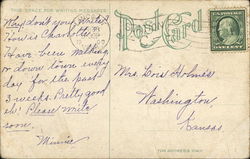 THIS SPACE FOR WRITING MESSAGES
Post Card
Why don't you write?
How is Charlotte?
Have been walking
or down town every
day for the past
3 weeks. Pretty good
eh? Please write
soon.
Minnie
Mrs. Lois Holmes
Washington,
Kansas
FOR ADDRESS ONLY